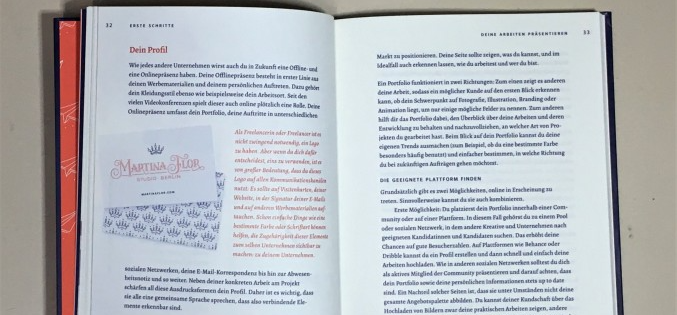 32 ERSTE SCHRITTE
Dein Profil
Wie jedes andere Unternehmen wirst auch du in Zukunft eine Offline- und
eine Onlinepräsenz haben. Deine Offlinepräsenz besteht in erster Linie aus
deinen Werbematerialien und deinem persönlichen Auftreten. Dazu gehört
dein Kleidungsstil ebenso wie beispielsweise dein Arbeitsort. Seit den
vielen Videokonferenzen spielt dieser auch online plötzlich eine Rolle. Deine
Onlinepräsenz umfasst dein Portfolio, deine Auftritte in unterschiedlichen
MARTINA FLOR
STUDIO BERLIN
MARTINAFLOR.COM
Als Freelancerin oder Freelancer ist es
nicht zwingend notwendig, ein Logo
zu haben. Aber wenn du dich dafür
entscheidest, eins zu verwenden, ist es
von großer Bedeutung, dass du dieses
Logo auf allen Kommunikationskanälen
nutzt: Es sollte auf Visitenkarten, deiner
Website, in der Signatur deiner E-Mails
und auf anderen Werbematerialien auf-
tauchen. Schon einfache Dinge wie eine
bestimmte Farbe oder Schriftart können
helfen, die Zugehörigkeit dieser Elemente
zum selben Unternehmen sichtbar zu
machen: zu deinem Unternehmen.
sozialen Netzwerken, deine E-Mail-Korrespondenz bis hin zur Abwesen-
heitsnotiz und so weiter. Neben deiner konkreten Arbeit am Projekt
schärfen all diese Ausdrucksformen dein Profil. Daher ist es wichtig, dass
sie alle eine gemeinsame Sprache sprechen, dass also verbindende Ele-
mente erkennbar sind.
DEINE ARBEITEN PRÄSENTIEREN 33
Markt zu positionieren. Deine Seite sollte zeigen, was du kannst, und im
Idealfall auch erkennen lassen, wie du arbeitest und wer du bist.
Ein Portfolio funktioniert in zwei Richtungen: Zum einen zeigt es anderen
deine Arbeit, sodass ein möglicher Kunde auf den ersten Blick erkennen
kann, ob dein Schwerpunkt auf Fotografie, Illustration, Branding oder
Animation liegt, um nur einige mögliche Felder zu nennen. Zum anderen
hilft dir das Portfolio dabei, den Überblick über deine Arbeiten und deren
Entwicklung zu behalten und nachzuvollziehen, an welcher Art von Pro-
jekten du gearbeitet hast. Beim Blick auf dein Portfolio kannst du deine
eigenen Trends ausmachen (zum Beispiel, ob du eine bestimmte Farbe
besonders häufig benutzt) und einfacher bestimmen, in welche Richtung
du bei zukünftigen Aufträgen gehen möchtest.
DIE GEEIGNETE PLATTFORM FINDEN
Grundsätzlich gibt es zwei Möglichkeiten, online in Erscheinung zu
treten. Sinnvollerweise kannst du sie auch kombinieren.
Erste Möglichkeit: Du platzierst dein Portfolio innerhalb einer Com-
munity oder auf einer Plattform. In diesem Fall gehörst du zu einem Pool
oder sozialen Netzwerk, in dem andere Kreative und Unternehmen nach
geeigneten Kandidatinnen und Kandidaten suchen. Das erhöht deine
Chancen auf gute Besucherzahlen. Auf Plattformen wie Behance oder
Dribble kannst du ein Profil erstellen und dann schnell und einfach deine
Arbeiten hochladen. Wie in anderen sozialen Netzwerken solltest du dich
als aktives Mitglied der Community präsentieren und darauf achten, dass
dein Portfolio sowie deine persönlichen Informationen stets up to date
sind. Ein Nachteil solcher Seiten ist, dass sie unter Umständen nicht deine
gesamte Angebotspalette abbilden. Du kannst deiner Kundschaft über das
Hochladen von Bildern zwar deine praktischen Arbeiten zeigen, andere